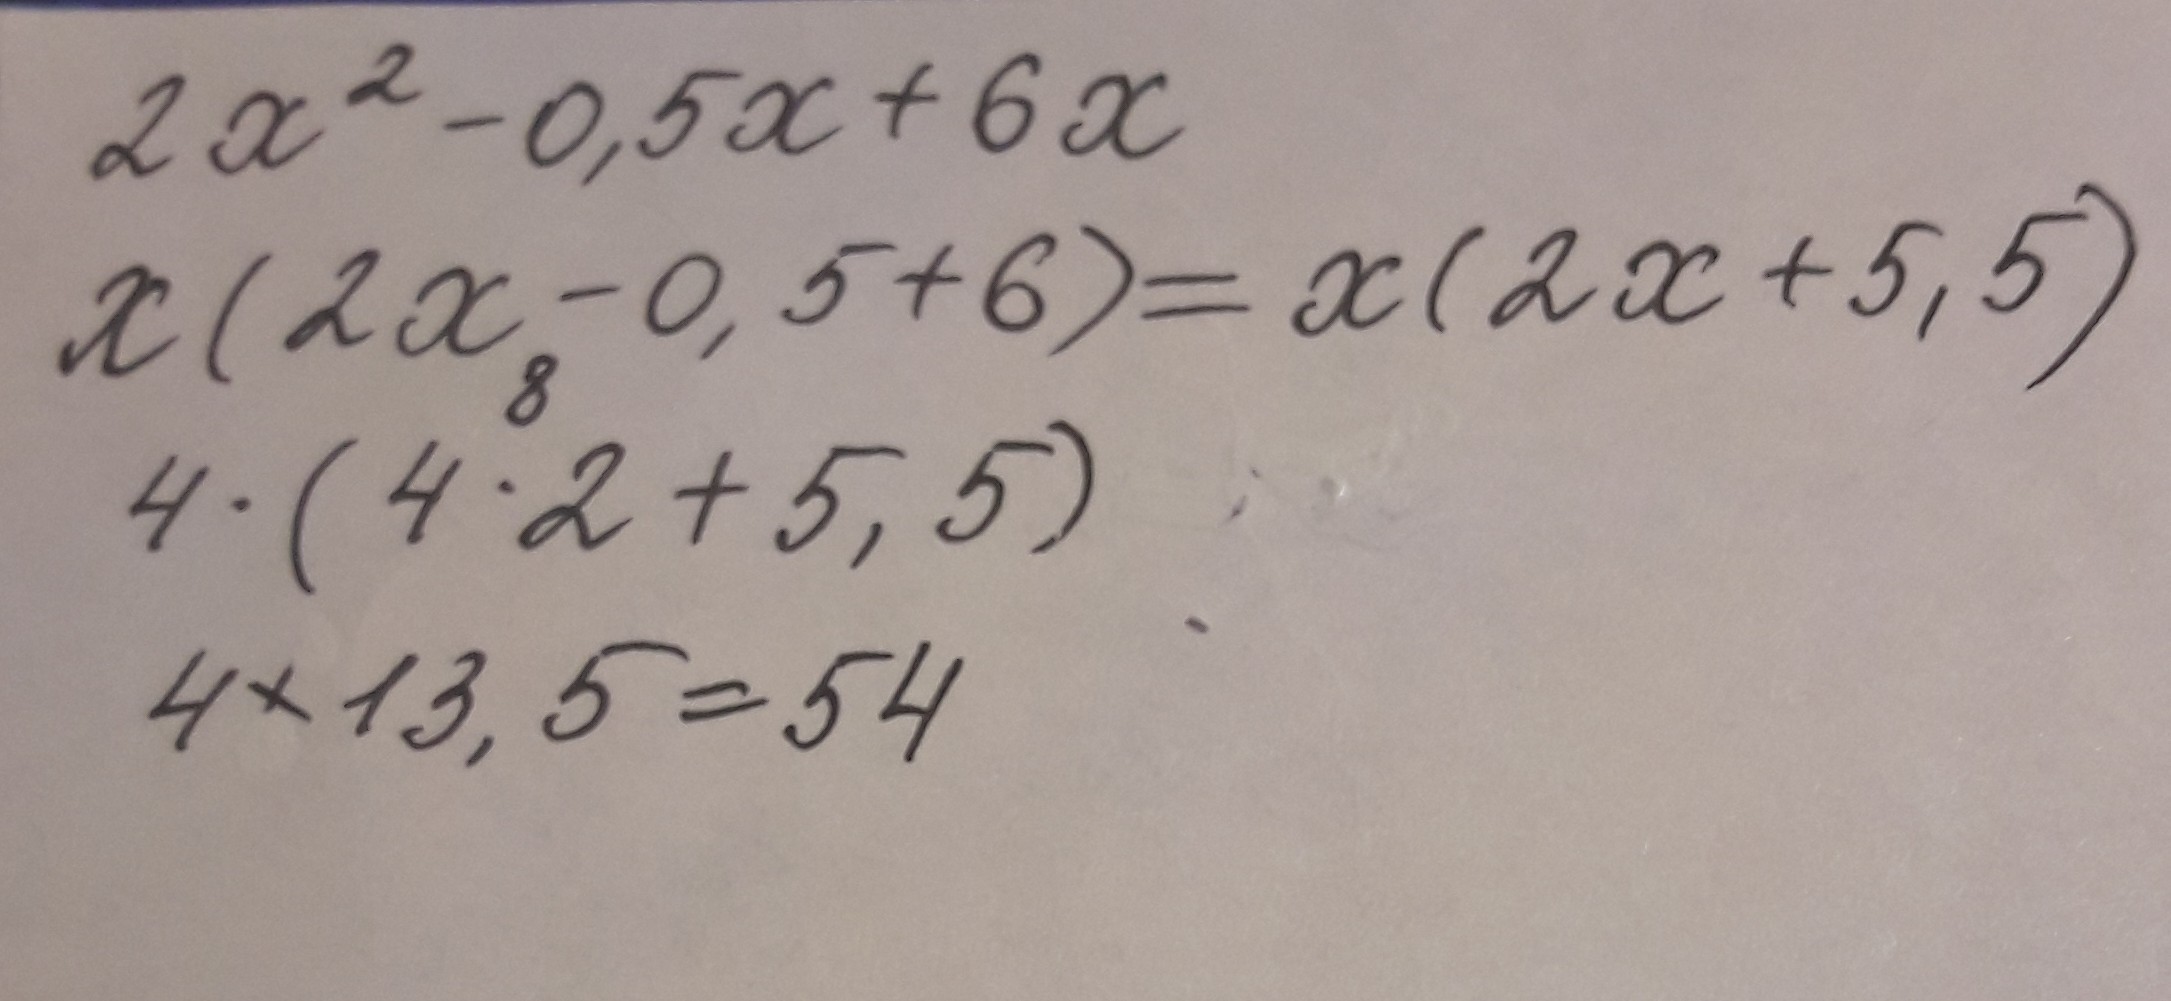 2x² - 0,5x + 6x
x(2x - 0,5 + 6) = x(2x + 5,5)
8
4 · (4 · 2 + 5,5)
4 × 13,5 = 54